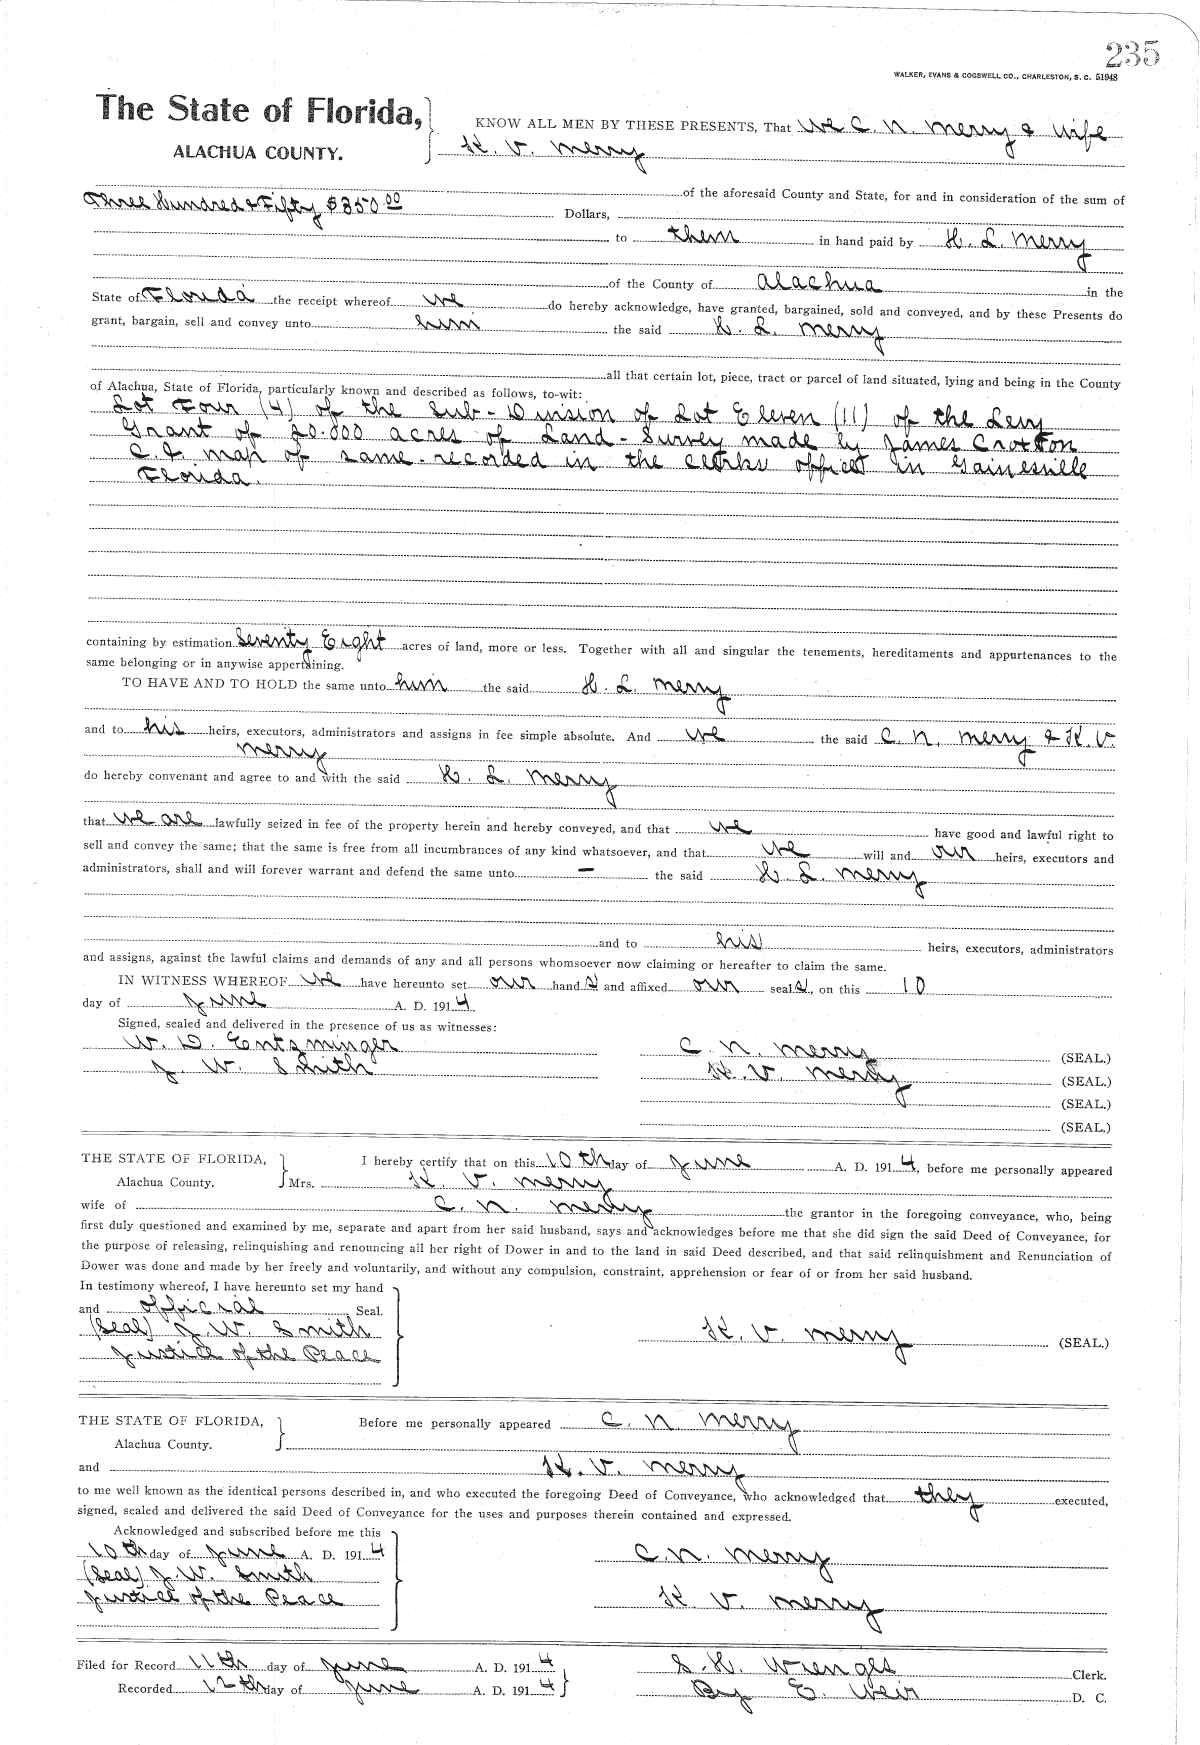 235
WALKER, EVANS & COGSWELL CO., CHARLESTON, S. C. 51948
The State of Florida,
ALACHUA COUNTY.
KNOW ALL MEN BY THESE PRESENTS, That we C. N. Merry & wife
K. V. Merry
of the aforesaid County and State, for and in consideration of the sum of
Three Hundred & Fifty $350.00 Dollars,
to them in hand paid by H. L. Merry
of the County of Alachua in the
State of Florida the receipt whereof we do hereby acknowledge, have granted, bargained, sold and conveyed, and by these Presents do
grant, bargain, sell and convey unto him the said H. L. Merry
all that certain lot, piece, tract or parcel of land situated, lying and being in the County
of Alachua, State of Florida, particularly known and described as follows, to-wit:
Lot Four (4) of the Sub-Division of Lot Eleven (11) of the Levy
Grant of 20.000 acres of Land - Survey made by James Croxton
C. E. map of same recorded in the clerks office in Gainesville
Florida.
containing by estimation Seventy Eight acres of land, more or less. Together with all and singular the tenements, hereditaments and appurtenances to the
same belonging or in anywise appertaining.
TO HAVE AND TO HOLD the same unto him the said H. L. Merry
and to his heirs, executors, administrators and assigns in fee simple absolute. And we the said C. N. Merry & K. V.
Merry
do hereby convenant and agree to and with the said H. L. Merry
that we are lawfully seized in fee of the property herein and hereby conveyed, and that we have good and lawful right to
sell and convey the same; that the same is free from all incumbrances of any kind whatsoever, and that we will and our heirs, executors and
administrators, shall and will forever warrant and defend the same unto - the said H. L. Merry
and to his heirs, executors, administrators
and assigns, against the lawful claims and demands of any and all persons whomsoever now claiming or hereafter to claim the same.
IN WITNESS WHEREOF we have hereunto set our hands and affixed our seals, on this 10
day of June A. D. 1914
Signed, sealed and delivered in the presence of us as witnesses:
W. D. Entzminger C. N. Merry (SEAL.)
J. W. Smith K. V. Merry (SEAL.)
(SEAL.)
(SEAL.)
THE STATE OF FLORIDA, I hereby certify that on this 10th day of June A. D. 1914, before me personally appeared
Alachua County. Mrs. K. V. Merry
wife of C. N. Merry the grantor in the foregoing conveyance, who, being
first duly questioned and examined by me, separate and apart from her said husband, says and acknowledges before me that she did sign the said Deed of Conveyance, for
the purpose of releasing, relinquishing and renouncing all her right of Dower in and to the land in said Deed described, and that said relinquishment and Renunciation of
Dower was done and made by her freely and voluntarily, and without any compulsion, constraint, apprehension or fear of or from her said husband.
In testimony whereof, I have hereunto set my hand
and official Seal.
(Seal) J. W. Smith K. V. Merry (SEAL.)
Justice of the Peace
THE STATE OF FLORIDA, Before me personally appeared C. N Merry
Alachua County.
and K. V. Merry
to me well known as the identical persons described in, and who executed the foregoing Deed of Conveyance, who acknowledged that they executed,
signed, sealed and delivered the said Deed of Conveyance for the uses and purposes therein contained and expressed.
Acknowledged and subscribed before me this
10th day of June A. D. 1914 C. N. Merry
(Seal) J. W. Smith
Justice of the Peace K V. Merry
Filed for Record 11th day of June A. D. 1914 S. H. Wienges Clerk.
Recorded 12th day of June A. D. 1914 By E. Weir D. C.